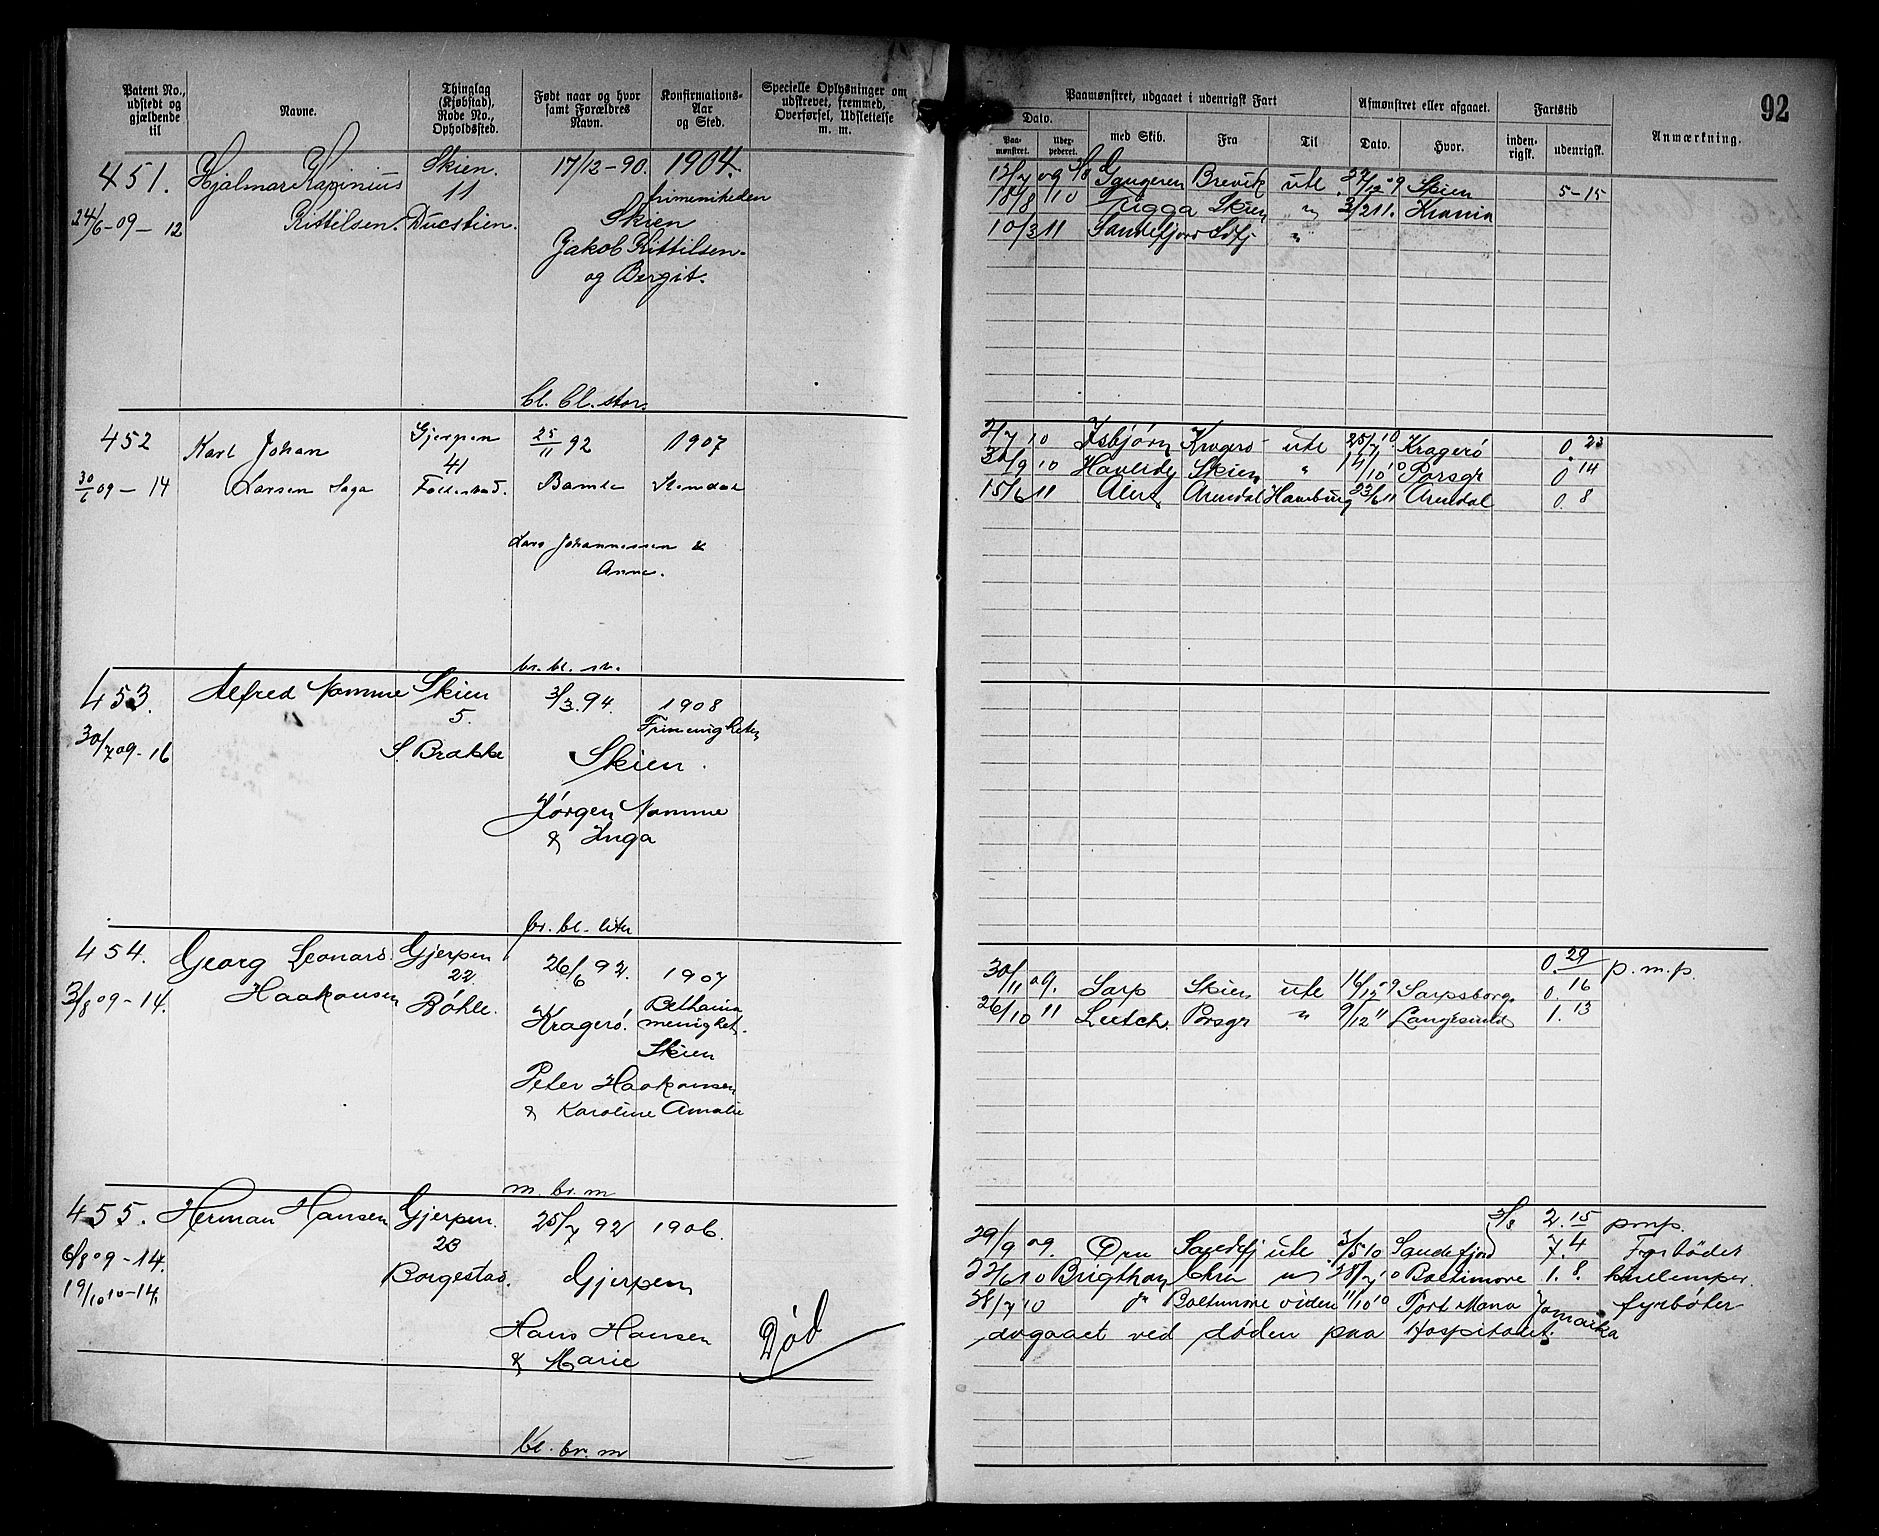 92
Patent No., udstedt og gjældende til
Navne.
Thinglag (Kjøbstad), Rode No., Opholdssted.
Født naar og hvor samt Forældres Navn.
Konfirmations-Aar og Sted.
Specielle Oplysninger om udstrevet, fremmed, Overførsel, Udslettelse m. m.
Paamønstret, udgaaet i udenrigsk Fart
Afmønstret eller afgaaet.
Fartstid
Anmærkning.
Dato.
Paa-mønstret.
Uder-pederet.
med Skib.
Fra
Til
Dato.
Hvor.
inden-rigsk.
udenrigsk.
451. Hjalmar Skien. 17/12-90. 1904.
11 frimenikeden
24/6-09-12 Kittilsen. Skien
Jakob Kittilsen
og Bergit.
bl. bl. stor.
Brevik ute Skien 5-15
18/8 10 Tugga Skien " 3/2 11.
10/3 11 Sandefjord "
452 Karl Johan Gjerpen 25/11 92 1907
41
30/6 09-14 Larsen Saga Bamle
Lars Johannessen &
Anne.
br. bl. m.
2/7 10 Isbjørn Kragerø ute 25/7 10. Kragerø 0. 23
30/9 10 Skien " 14/10 10 Porsgr 0 14
15/6 11 Alert Arendal Hamburg 23/6 11 Arendal 0. 8
453. Alfred Namme Skien 3/3. 94. 1908
5.
30/7 09-16 S. Brakke Skien.
Jørgen Namme
& Inga
br. bl. liten
454. Georg Leonard Gjerpen 26/6 92. 1907
22
3/8 09-14. Haakonsen Bøhle. Kragerø. Bethania menighet.
Skien
Peter Haakonsen
& Karoline Amalie
m. br. m
0. 29 p. m. p.
30/11 09. Sarp Skien ute 16/12 09 Sarpsborg 0. 16
26/10 11 Porsgr " 9/12 11 Langesund 1. 13
455. Herman Hansen Gjerpen 25/7 92 1906.
23
6/8 09-14. Borgestad. Gjerpen
19/10 10-14
Hans Hansen
& Marie
Død
bl. br. m
2. 15 pmp.
29/9 09. Ørn Sandefj ute 3/5 10 Sandefjord 7. 4 Fyrbøder
22/6 10 Chra " 28/7 10 Baltimore 1. 8. kullemper.
28/7 10 Baltimore videre 11/10 10 Port Maria Jamaika fyrbøter
avgaaet ved døden paa Hospitalet.